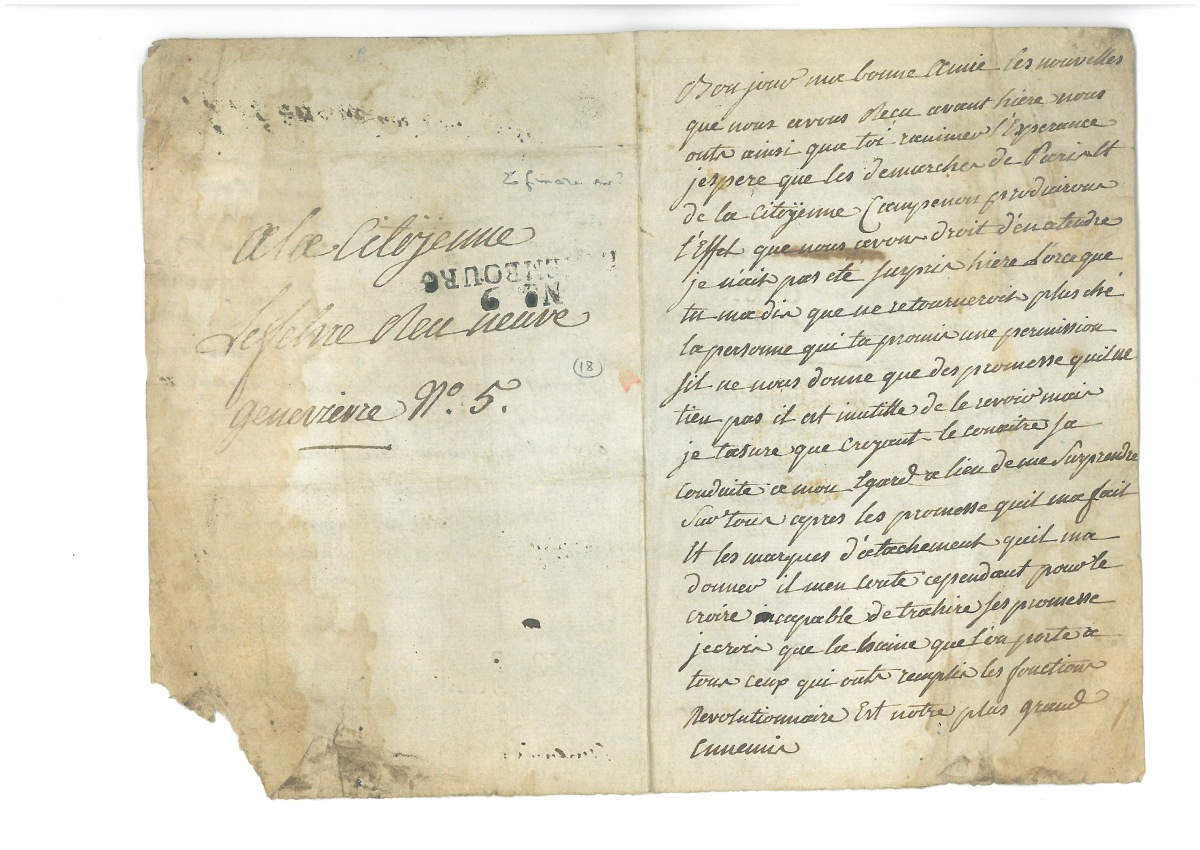 26 frimaire an 3
a la Citoÿenne
LUXEMBOURG
No. 9
Lefebvre Reu neuve
(18)
genevieve No. 5.
Bon jour ma bonne Amie les nouvelles
que nous avons Recu avant hiere nous
onts ainsi que toi ranimer l'Esperance
jespere que les demarches de Paris Et
de la Citoÿenne Campenon produirons
l'Effet que nous avons droit d'en atendre
je n'ait pas eté surpris hiere l'orceque
tu ma dis que ne retourneroit plus ché
la personne qui ta promis une permission
sil ne nous donne que des promesse quil ne
tien pas il est inutille de le revoir mais
je tasure que croyant le conaitre sa
conduite a mon Egard a lieu de me surprendre
sur tous apres les promesse quil ma fait
Et les marques d'atachement quil ma
donner il men coute cependant pour le
croire incapable de trahire ses promesse
je crois que la haine que l'on porte a
tous ceux qui onts remplis les fonctions
Revolutionnaire Est notre plus grand
Ennemis